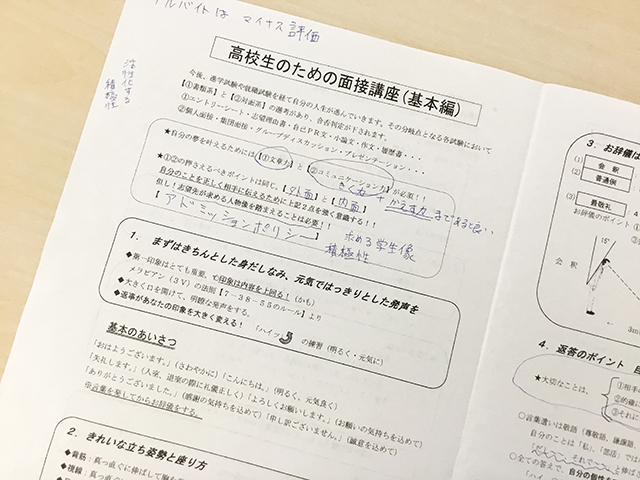 アルバイトは マイナス評価
活性化する
積極性
高校生のための面接講座(基本編)
今後、進学試験や就職試験を経て自分の人生が進んでいきます。その分岐点となる各試験において
【①書類系】と【②対面系】の選考があり、合否判定が下されます。
①エントリーシート・志望理由書・自己PR文・小論文・作文・履歴書・・・
②個人面接・集団面接・グループディスカッション・プレゼンテーション・・・
★自分の夢を叶えるためには【①文章力】と【②コミュニケーション力】が必須!!
きく力 + かえす力 まであると良い
★①②の押さえるべきポイントは同じ、【外面】と【内面】
自分のことを正しく相手に伝えるために上記2点を強く意識する!!
但し!志望先が求める人物像を踏まえることは必要!!
【アドミッションポリシー】 求める学生像
積極性
1. まずはきちんとした身だしなみ、元気ではっきりとした発声を
◆第一印象はとても重要、で印象は内容を上回る!(かも)
メラビアン(3V)の法則【7-38-55のルール】より
◆大きく口を開けて、明瞭な発声をする。
◆返事があなたの印象を大きく変える! 「ハイッ」の練習(明るく・元気に)
基本のあいさつ
「おはようございます。」(さわやかに)「こんにちは。」(明るく、元気良く)
「失礼します。」(入室、退室の際に礼儀正しく)「よろしくお願いします。」(お願いの気持ちを込めて)
「ありがとうございました。」(感謝の気持ちを込めて)「申し訳ございません。」(誠意を込めて)
※言葉を発してからお辞儀をする。
2. きれいな立ち姿勢と座り方
◆背筋:真っ直ぐに伸ばして胸を
◆視線:真っ直ぐ
3. お辞儀は
(1) 会釈
(2) 普通例
(3) 最敬礼
お辞儀のポイント
15°
会釈
3m
4. 返答のポイント 自
★大切なことは、
①相手
②的確に
③それに
○言葉遣いは敬語(尊敬語、謙譲語
自分のことは「私」、「部活」では
○全ての答えで、自分の個性を